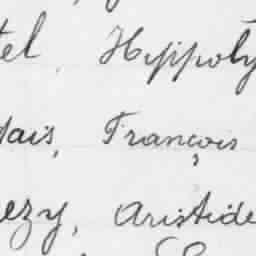 tel, Hyppoly
dais, François
ezy, Aristide